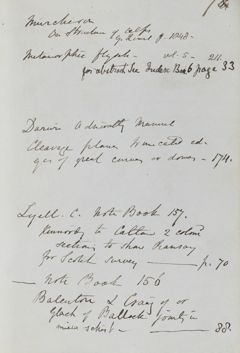 Murchison
On Structure of Alps
Q. J. Geol. of 1848.
Metamorphic flysch — vol. 5 — 211.
for abstract See Index Book 6 page 33
Darwin Admiralty Manual
Cleavage planes truncated ed-
ges of great curves or domes — 174.
Lyell. C. Note Book 157.
Kinnordy to Cotton 2 colour
sections to show Ramsay
for Scotch Survey — p. 70
— Note Book 156
& Craig of or
Glack of Balloch joints in
mica schist — 88.